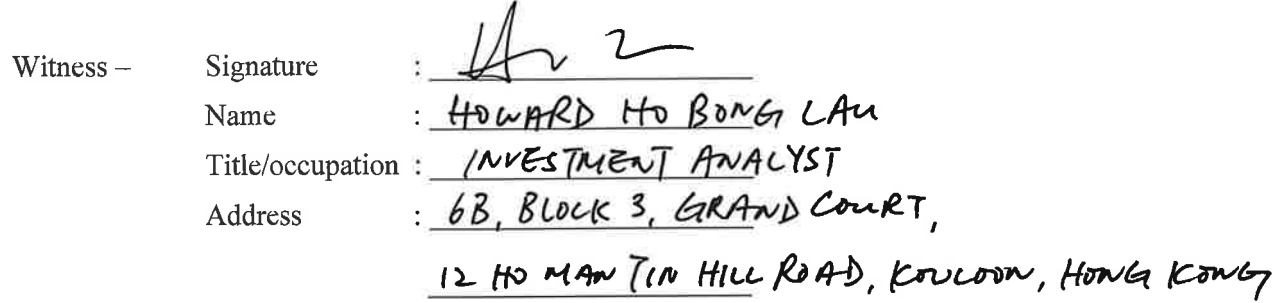 Witness – Signature :
Name : HOWARD HO BONG LAU
Title/occupation : INVESTMENT ANALYST
Address : 6B, BLOCK 3, GRAND COURT,
12 HO MAN TIN HILL ROAD, KOULOON, HONG KONG